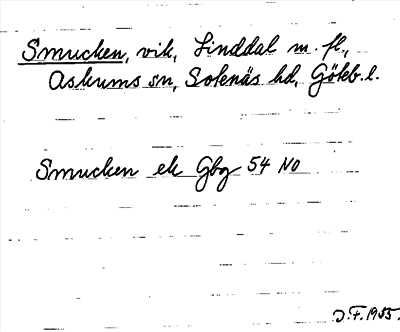 Smucken, vik, Linddal m. fl.,
Askums sn, Sotenäs hd, Göteb. l.
Smucken ek Gbg 54 NO
J. F. 1955.